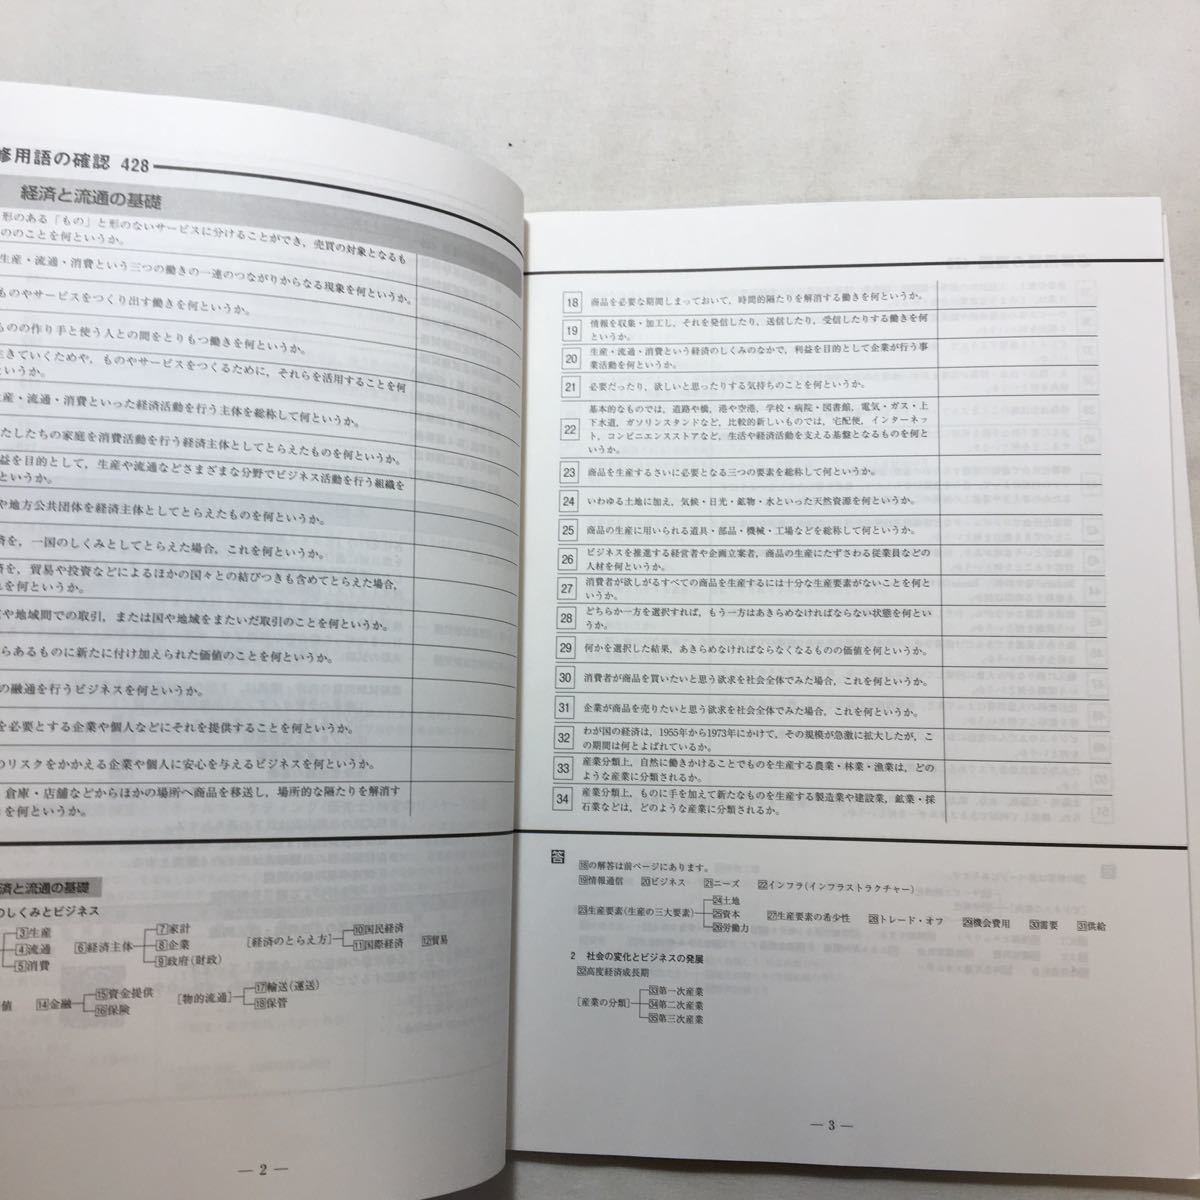 修用語の確認 428
経済と流通の基礎
形のある「もの」と形のないサービスに分けることができ，売買の対象となるも
ののことを何というか。
生産・流通・消費という三つの働きの一連のつながりからなる現象を何というか。
ものやサービスをつくり出す働きを何というか。
ものの作り手と使う人との間をとりもつ働きを何というか。
生きていくためや，ものやサービスをつくるために，それらを活用することを何
というか。
生産・流通・消費といった経済活動を行う主体を総称して何というか。
たしたちの家庭を消費活動を行う経済主体としてとらえたものを何というか。
益を目的として，生産や流通などさまざまな分野でビジネス活動を行う組織を
というか。
や地方公共団体を経済主体としてとらえたものを何というか。
済を，一国のしくみとしてとらえた場合，これを何というか。
済を，貿易や投資などによるほかの国々との結びつきも含めてとらえた場合，
れを何というか。
や地域間での取引，または国や地域をまたいだ取引のことを何というか。
らあるものに新たに付け加えられた価値のことを何というか。
の融通を行うビジネスを何というか。
を必要とする企業や個人などにそれを提供することを何というか。
のリスクをかかえる企業や個人に安心を与えるビジネスを何というか。
倉庫・店舗などからほかの場所へ商品を移送し，場所的な隔たりを解消す
を何というか。
済と流通の基礎
のしくみとビジネス
3生産
4流通
5消費
6経済主体
7家計
8企業
9政府(財政)
[経済のとらえ方]
10国民経済
11国際経済
12貿易
値
14金融
15資金提供
16保険
[物的流通]
17輸送(運送)
18保管
— 2 —
18 商品を必要な期間しまっておいて，時間的隔たりを解消する働きを何というか。
19 情報を収集・加工し，それを発信したり，送信したり，受信したりする働きを何
というか。
20 生産・流通・消費という経済のしくみのなかで，利益を目的として企業が行う事
業活動を何というか。
21 必要だったり，欲しいと思ったりする気持ちのことを何というか。
22 基本的なものでは，道路や橋，港や空港，学校・病院・図書館，電気・ガス・上
下水道，ガソリンスタンドなど，比較的新しいものでは，宅配便，インターネッ
ト，コンビニエンスストアなど，生活や経済活動を支える基盤となるものを何と
いうか。
23 商品を生産するさいに必要となる三つの要素を総称して何というか。
24 いわゆる土地に加え，気候・日光・鉱物・水といった天然資源を何というか。
25 商品の生産に用いられる道具・部品・機械・工場などを総称して何というか。
26 ビジネスを推進する経営者や企画立案者，商品の生産にたずさわる従業員などの
人材を何というか。
27 消費者が欲しがるすべての商品を生産するには十分な生産要素がないことを何と
いうか。
28 どちらか一方を選択すれば，もう一方はあきらめなければならない状態を何とい
うか。
29 何かを選択した結果，あきらめなければならなくなるものの価値を何というか。
30 消費者が商品を買いたいと思う欲求を社会全体でみた場合，これを何というか。
31 企業が商品を売りたいと思う欲求を社会全体でみた場合，これを何というか。
32 わが国の経済は，1955年から1973年にかけて，その規模が急激に拡大したが，こ
の期間は何とよばれているか。
33 産業分類上，自然に働きかけることでものを生産する農業・林業・漁業は，どの
ような産業に分類されるか。
34 産業分類上，ものに手を加えて新たなものを生産する製造業や建設業，鉱業・採
石業などは，どのような産業に分類されるか。
答
18の解答は前ページにあります。
19情報通信 20ビジネス 21ニーズ 22インフラ(インフラストラクチャー)
23生産要素(生産の三大要素)
24土地
25資本
26労働力
27生産要素の希少性 28トレード・オフ 29機会費用 30需要 31供給
2 社会の変化とビジネスの発展
32高度経済成長期
[産業の分類]
33第一次産業
34第二次産業
35第三次産業
— 3 —